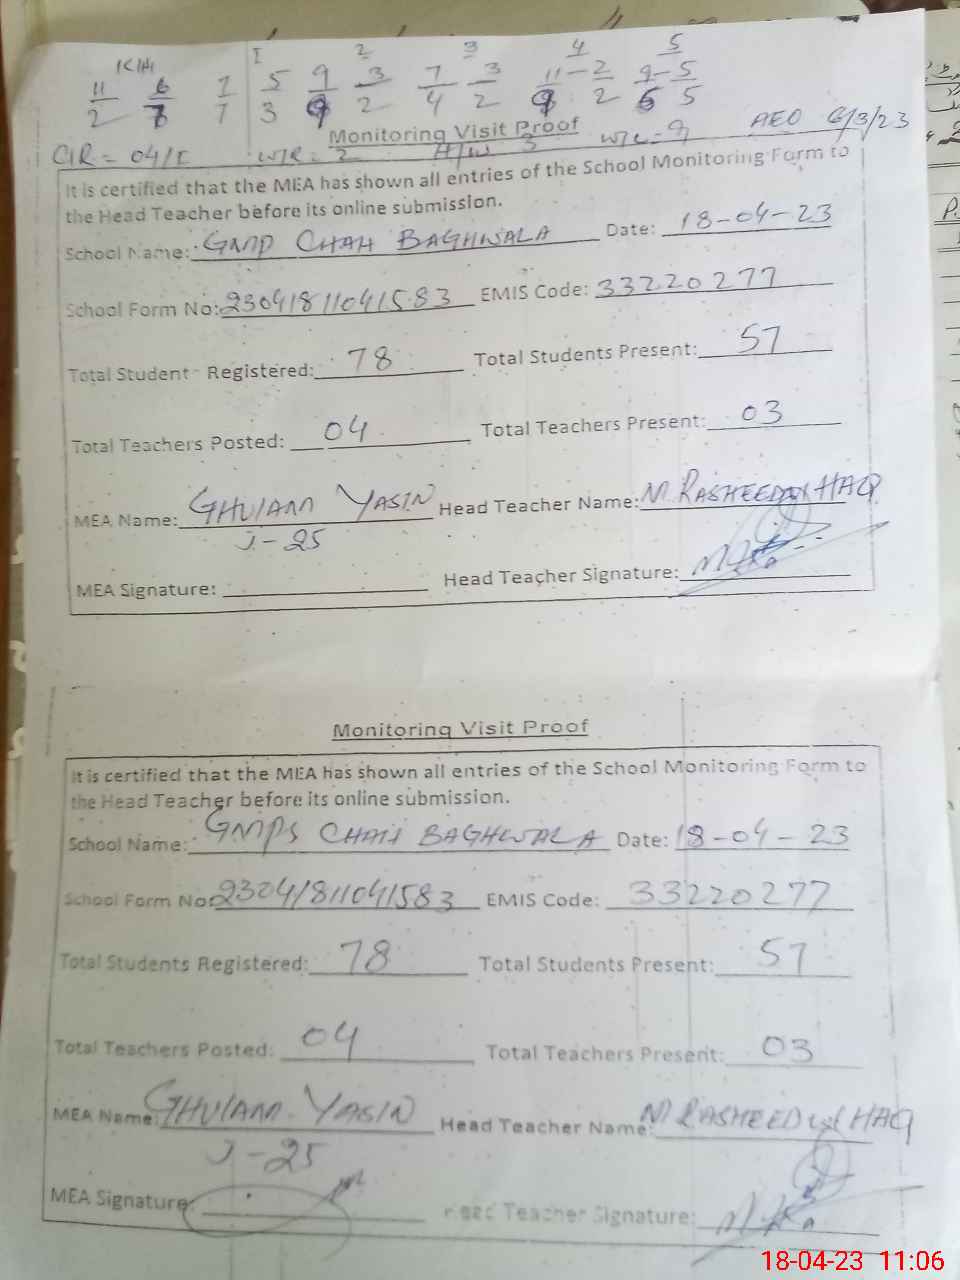 KH I 2 3 4 5
11 6 7 5 9 3 7 3 11-2 9-5
2 7 7 3 9 2 4 2 9 2 6 5
Monitoring Visit Proof
W/R = 2 H/W 3 W/C = 9 AEO 6/3/23
It is certified that the MEA has shown all entries of the School Monitoring Form to
the Head Teacher before its online submission.
School Name: GMP CHAH BAGHWALA Date: 18-04-23
School Form No: 23041811041583 EMIS Code: 33220277
Total Student Registered: 78 Total Students Present: 57
Total Teachers Posted: 04 Total Teachers Present: 03
MEA Name: GHULAM YASIN Head Teacher Name: M. RASHEED ul HAQ
J-25
MEA Signature: Head Teacher Signature:
Monitoring Visit Proof
It is certified that the MEA has shown all entries of the School Monitoring Form to
the Head Teacher before its online submission.
School Name: GMPS CHAH BAGHWALA Date: 18-04-23
School Form No: 23041811041583 EMIS Code: 33220277
Total Students Registered: 78 Total Students Present: 57
Total Teachers Posted: 04 Total Teachers Present: 03
MEA Name: GHULAM YASIN Head Teacher Name: M RASHEED ul HAQ
J-25
MEA Signature: Head Teacher Signature:
18-04-23 11:06